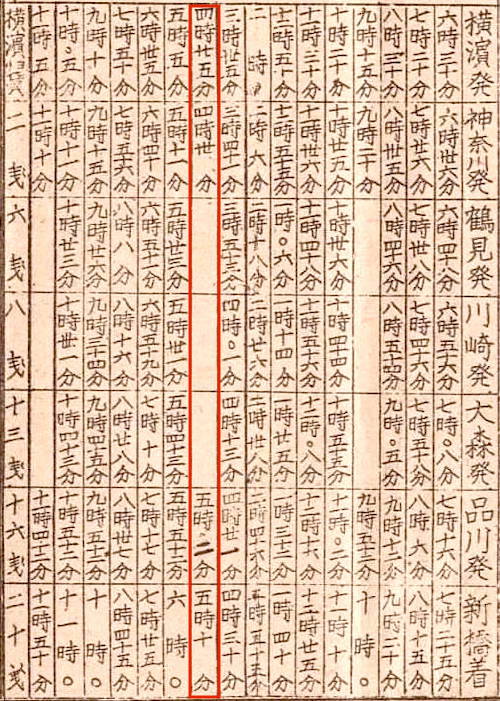 横濱発 神奈川発 鶴見発 川崎発 大森発 品川発 新橋着
六時二十分 六時廿六分 六時四十分 六時五十六分 七時〇八分 七時十六分 七時二十五分
七時二十分 七時廿六分 七時卅八分 七時四十六分 七時五十八分 八時六分 八時十五分
八時三十分 八時卅五分 八時四十六分 八時五十四分 九時〇五分 九時十二分 九時二十分
九時十五分 九時二十分 九時五十三分 十時〇
十時二十分 十時廿五分 十時卅六分 十時四十四分 十時五十五分 十一時〇二分 十一時十分
十一時三十分 十一時卅六分 十一時四十八分 十一時五十六分 十二時〇八分 十二時十六分 十二時廿五分
十二時五十分 十二時五十五分 一時〇六分 一時十四分 一時廿五分 一時三十二分 一時四十分
二時〇 二時六分 二時十八分 二時廿六分 二時卅八分 二時四十六分 二時五十五分
三時卅五分 三時四十一分 三時五十三分 四時〇一分 四時十三分 四時廿一分 四時三十分
四時廿五分 四時卅分 五時〇二分 五時十分
五時五分 五時十一分 五時廿三分 五時卅一分 五時四十三分 五時五十二分 六時〇
六時卅五分 六時四十分 六時五十一分 六時五十九分 七時十分 七時十七分 七時廿五分
七時五十分 七時五十六分 八時八分 八時十六分 八時廿八分 八時卅七分 八時四十五分
九時十分 九時十五分 九時廿六分 九時三十四分 九時四十五分 九時五十二分 十時〇
十時〇五分 十時十一分 十時廿三分 十時卅一分 十時四十三分 十時五十二分 十一時〇
十一時五分 十一時十分 十一時四十二分 十一時五十分
横濱 賃 二戋 六戋 八戋 十三戋 十六戋 二十戋